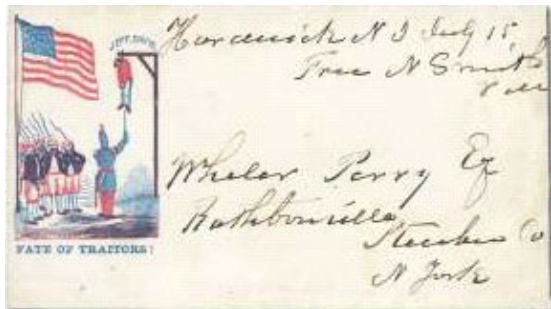 JEFF. DAVIS
FATE OF TRAITORS!
N July 15
Free N Smith
Wheler Perry Eq
Rathboneville
Steuben Co
N York